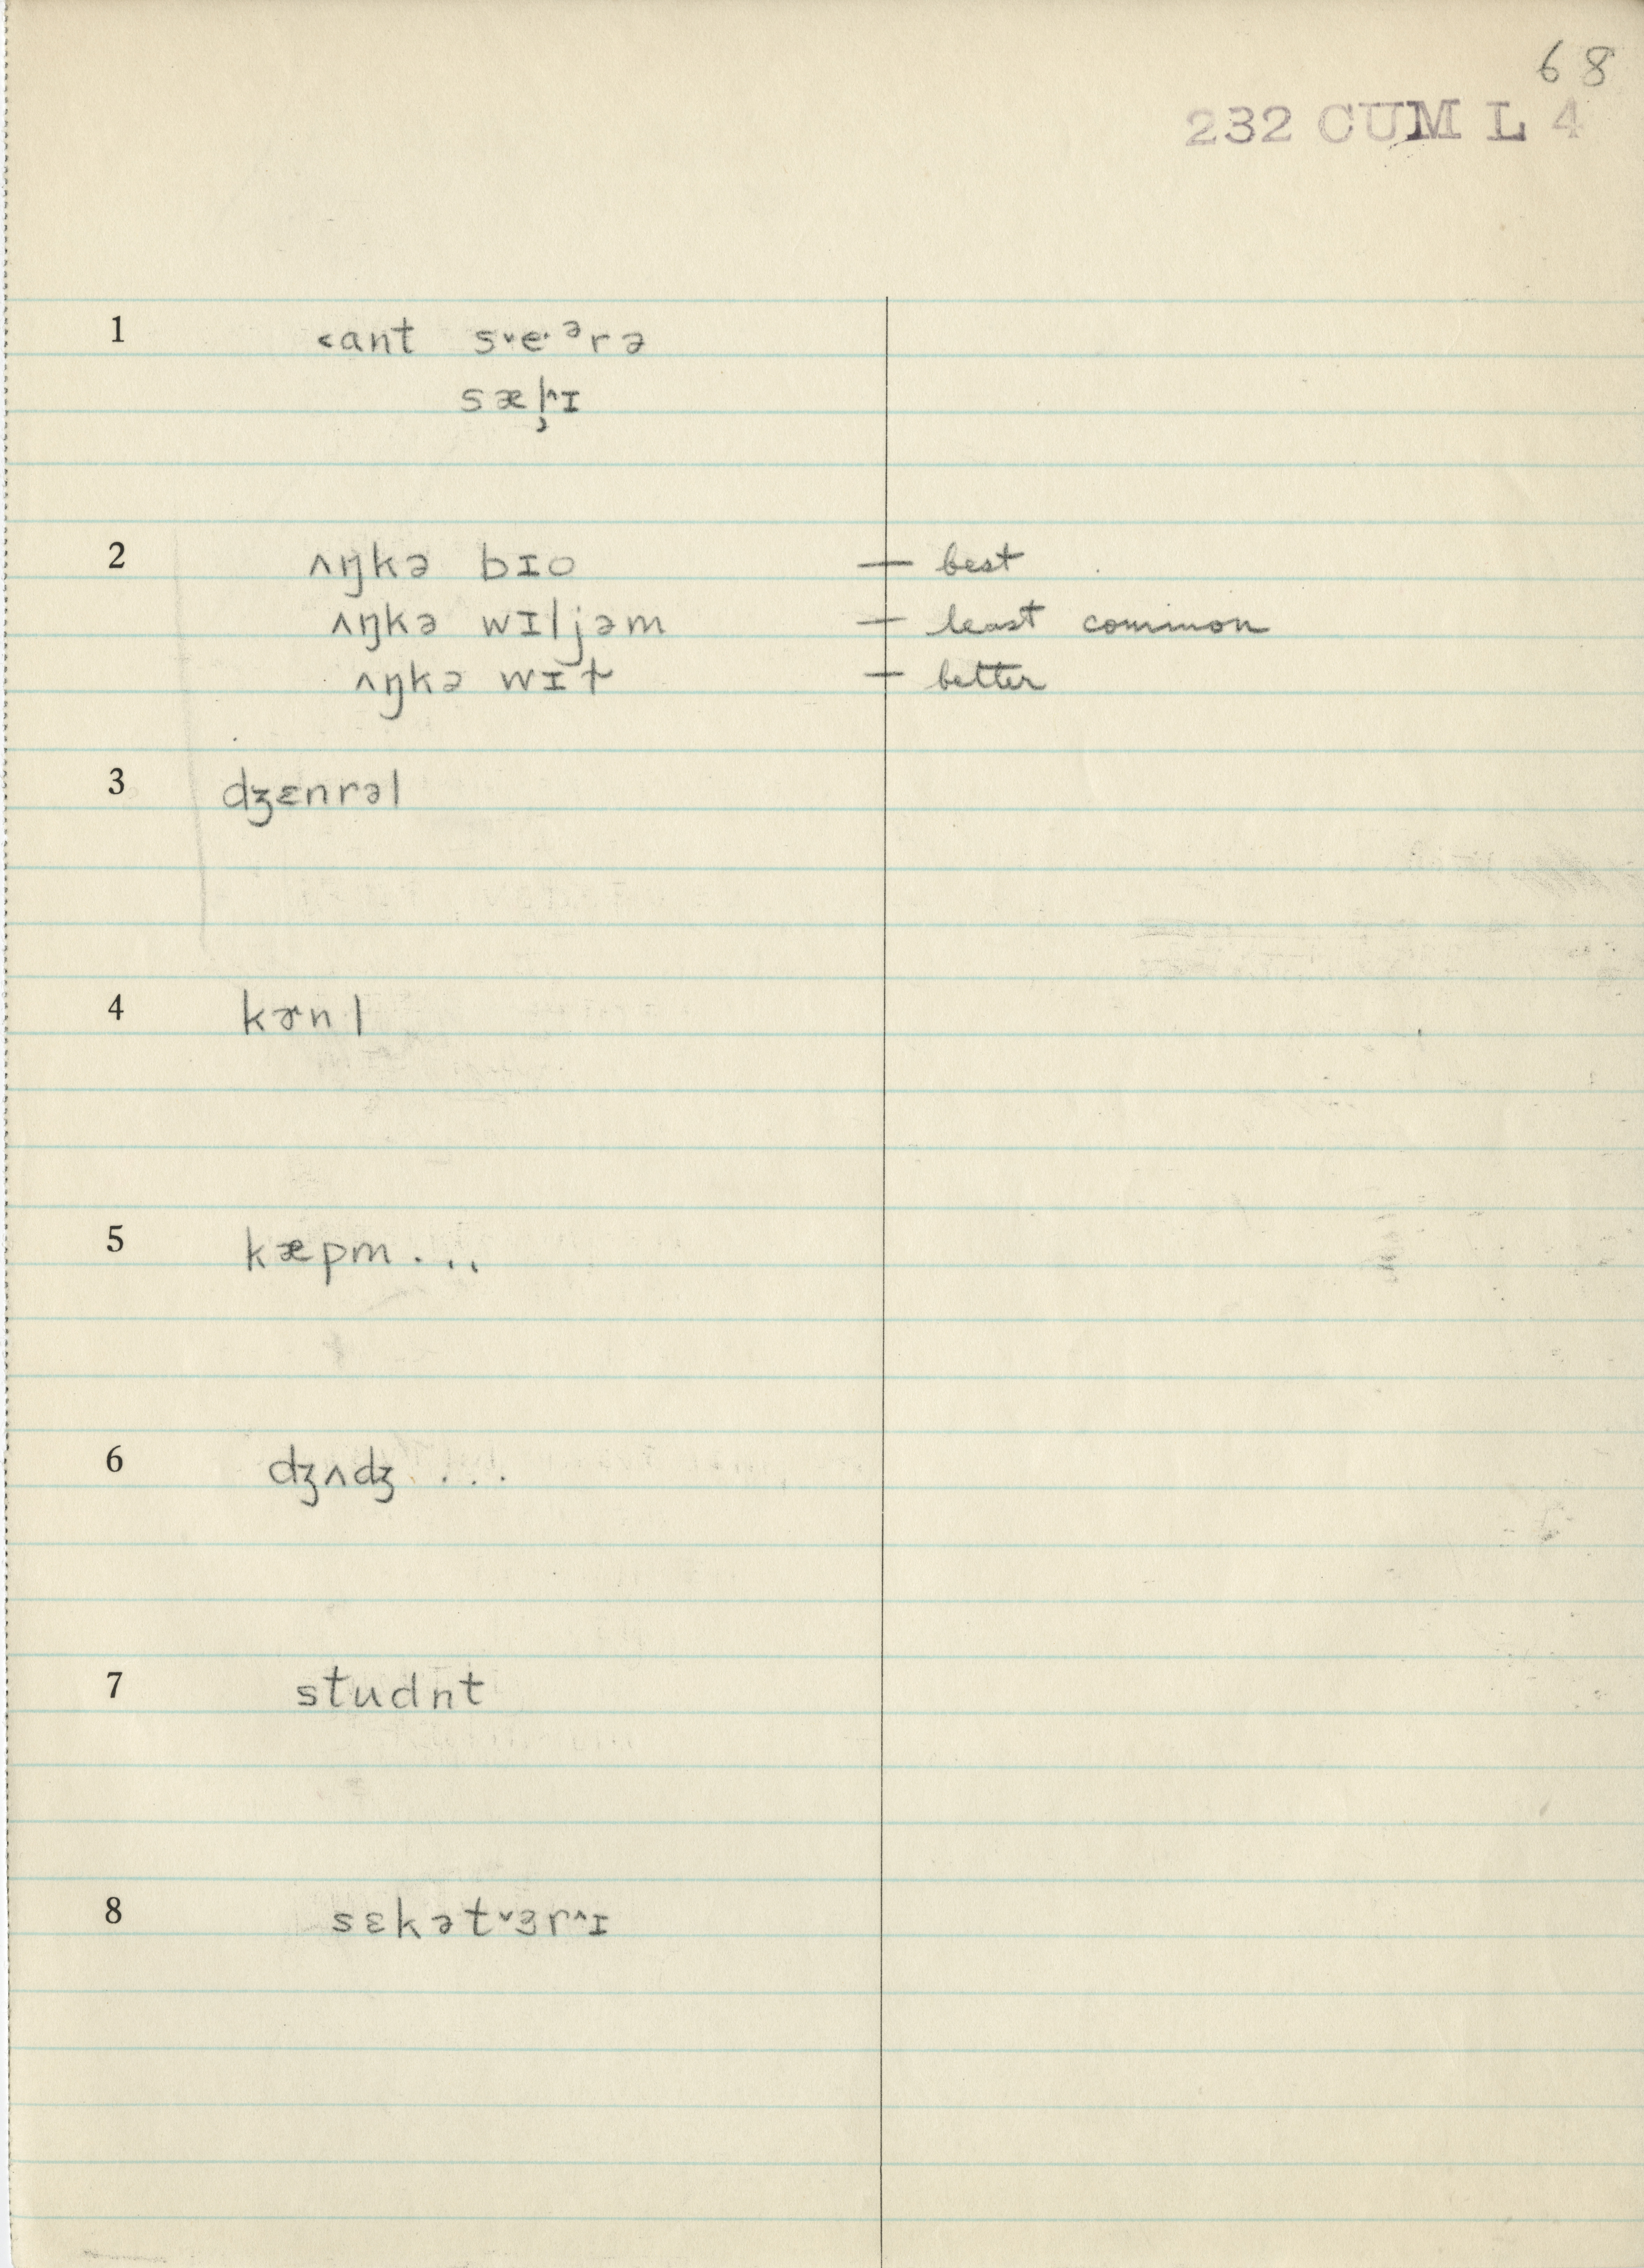 68
232 CUM L 4
1 ˂ant s˅e·ᵊrə
sæl̦^ɪ
2 ʌŋkə bɪo — best
ʌŋkə wɪljəm — least common
ʌŋkə wɪt — better
3 dʒɛnrəl
4 kɚnl
5 kæpm...
6 dʒʌdʒ ...
7 studnt
8 sɛkət˅ɜr^ɪ